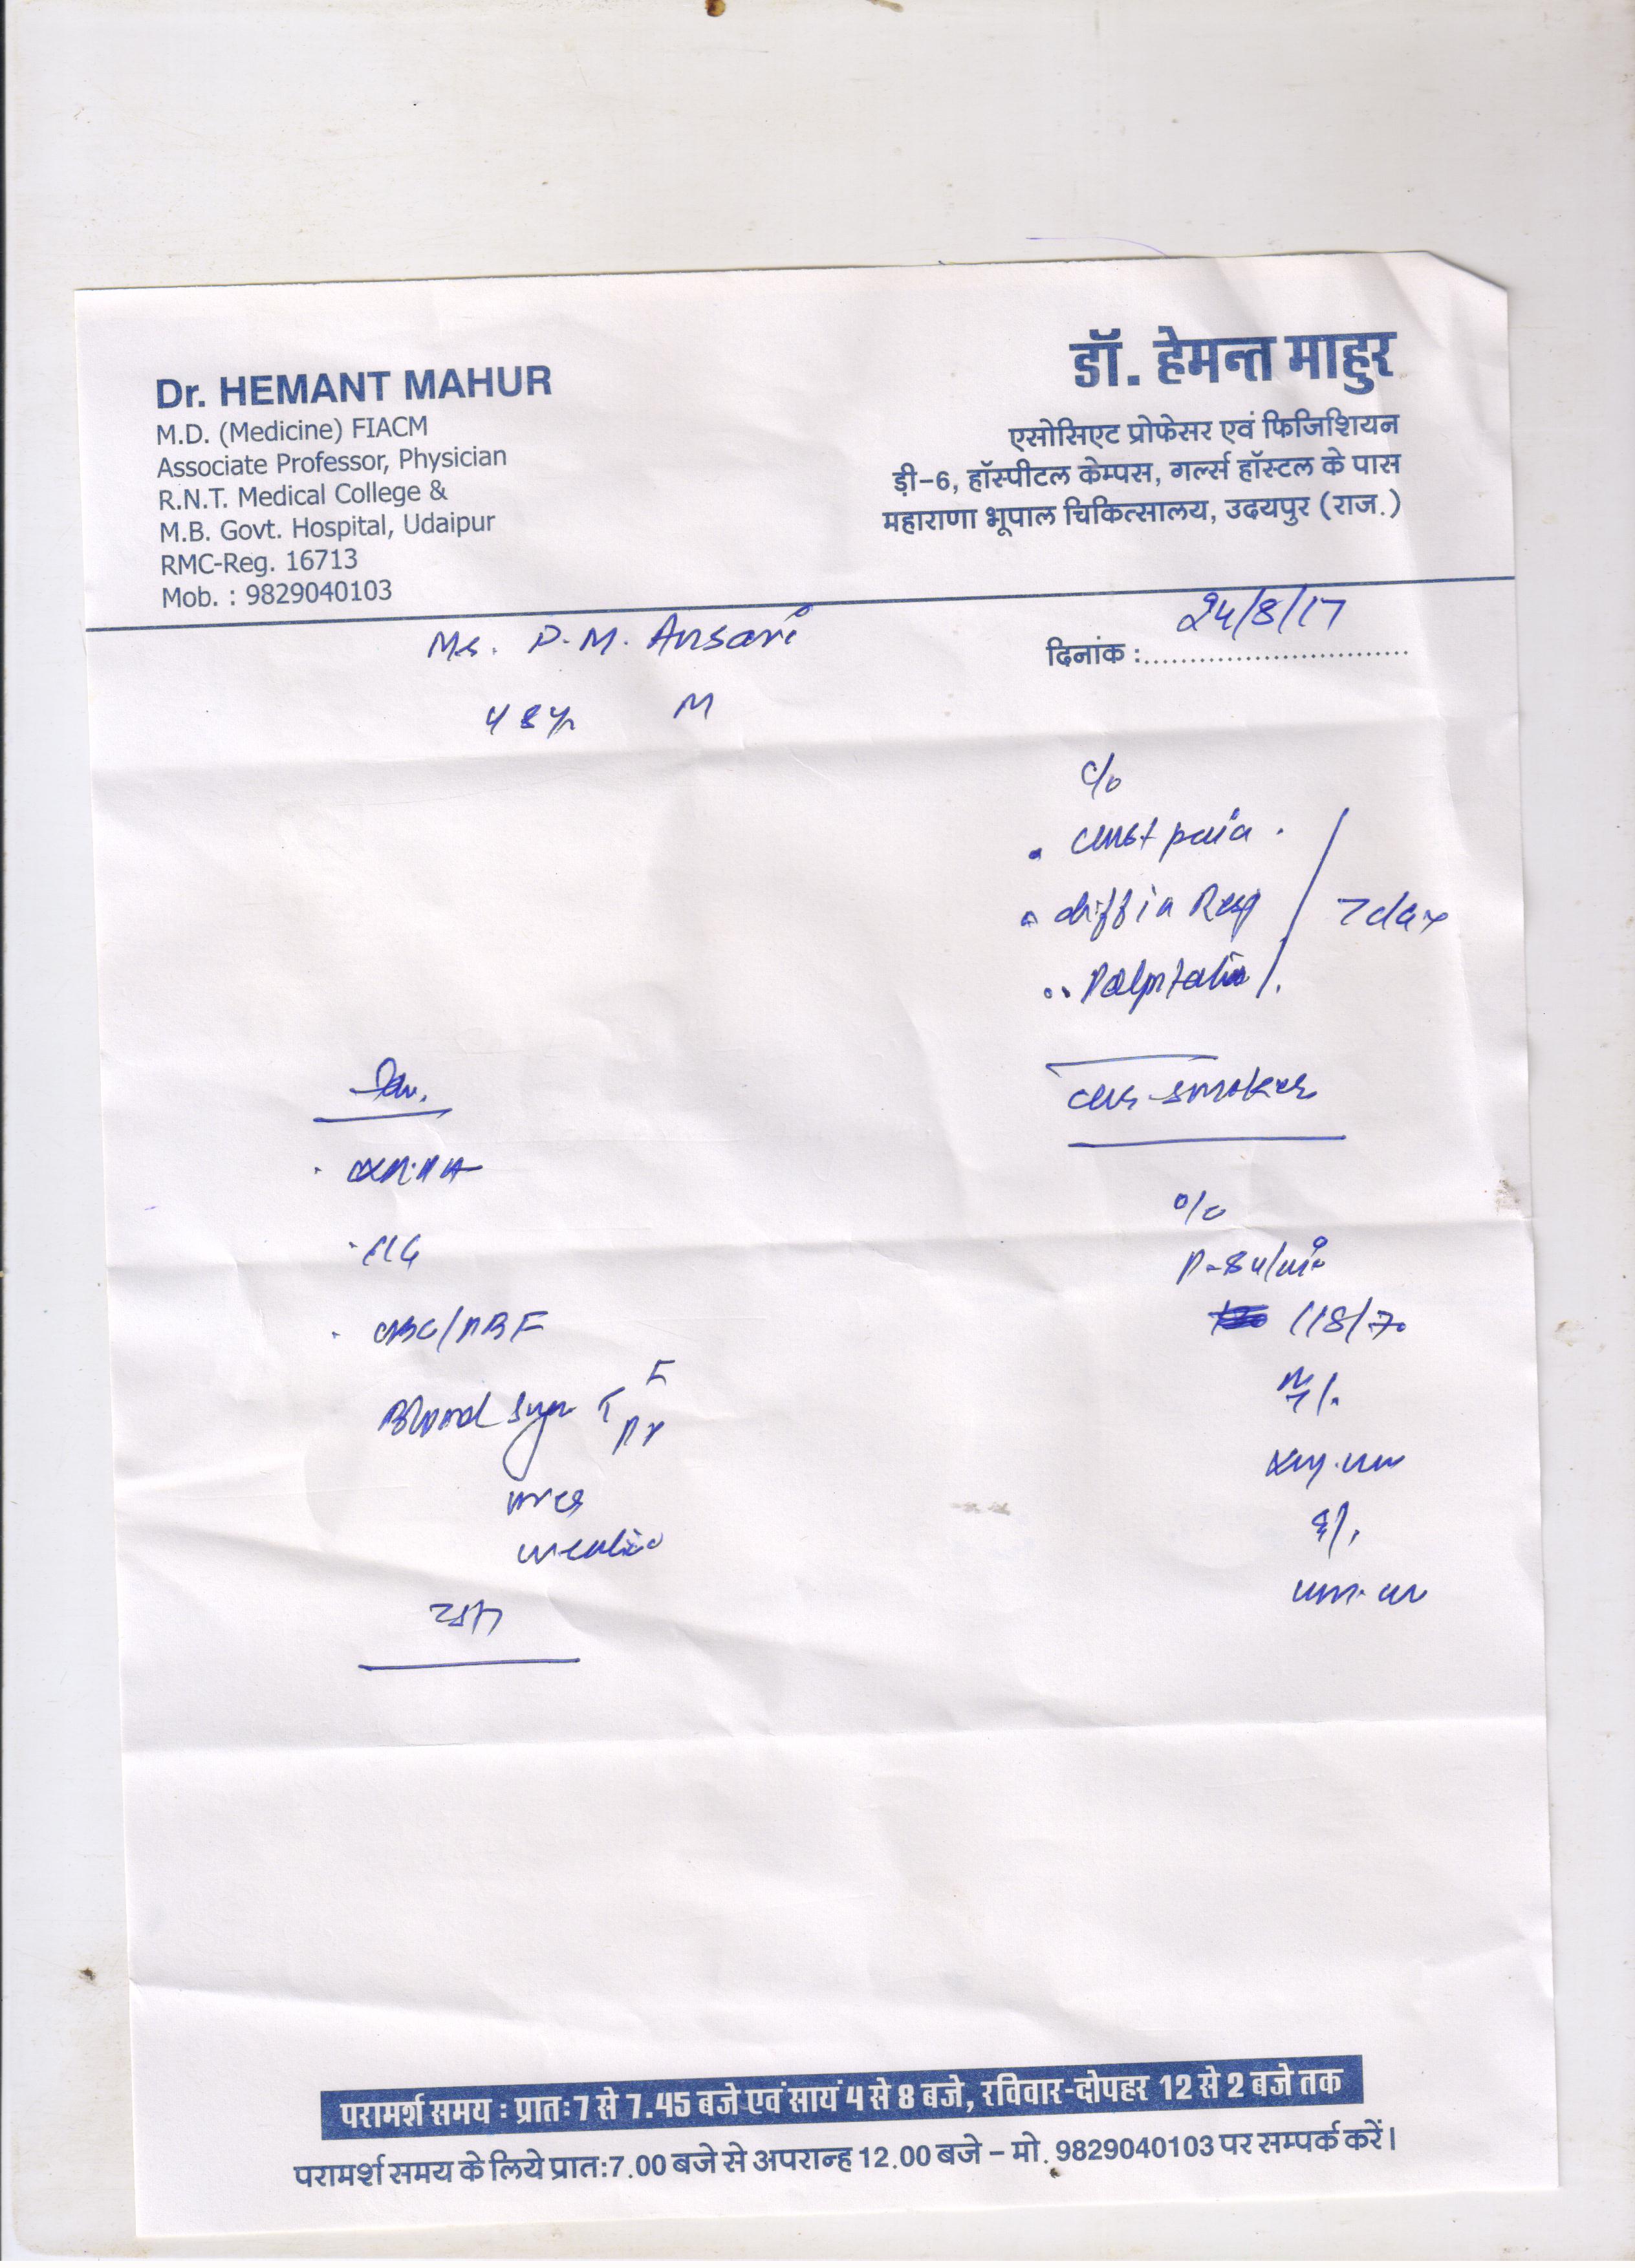 Dr. HEMANT MAHUR
M.D. (Medicine) FIACM
Associate Professor, Physician
R.N.T. Medical College &
M.B. Govt. Hospital, Udaipur
RMC-Reg. 16713
Mob. : 9829040103
डॉ. हेमन्त माहुर
एसोसिएट प्रोफेसर एवं फिजिशियन
ड़ी-6, हॉस्पीटल केम्पस, गर्ल्स हॉस्टल के पास
महाराणा भूपाल चिकित्सालय, उदयपुर (राज.)
P.M. Ansari
दिनांक : 24/8/17
48yr M
c/o
chest pain
diff in Resp
7 day
Palpitation
smoker
o/e
P-84/min
118/70
CBC/PBF
Blood Sugar F
PP
urea
creatinine
परामर्श समय : प्रातः 7 से 7.45 बजे एवं सायं 4 से 8 बजे, रविवार-दोपहर 12 से 2 बजे तक
परामर्श समय के लिये प्रातः 7.00 बजे से अपरान्ह 12.00 बजे – मो. 9829040103 पर सम्पर्क करें।